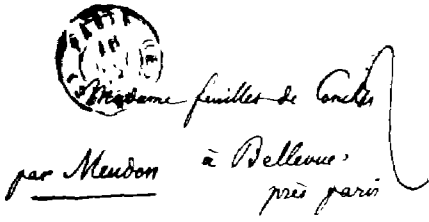 PARIS
Madame feuillet de Conches
par Meudon à Bellevue
près paris